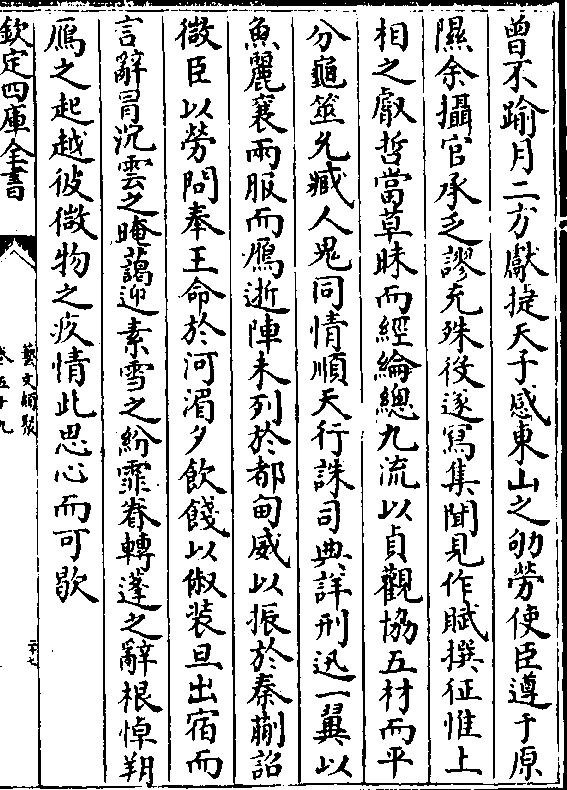 曾不踰月二方獻捷天子感東山之劬勞使臣遵于原
隰余攝官承乏謬充殊役遂寫集聞見作賦撰征惟上
相之叡哲當草昧而經綸總九流以貞觀協五材而平
分龜筮允臧人鬼同情順天行誅司典詳刑迅一翼以
魚麗襄兩服而鴈逝陣未列於都甸威以振於秦蒯詔
微臣以勞問奉王命於河湄夕飲餞以俶裝旦出宿而
言辭冒沉雲之晻藹迎素雪之紛霏眷轉蓬之辭根悼朔
鴈之起越彼微物之疚情此思心而可歇
欽定四庫全書
藝文類聚
卷五十九